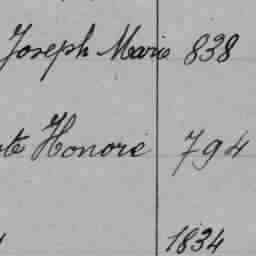 Joseph Marie 838
te Honoré 794
1834